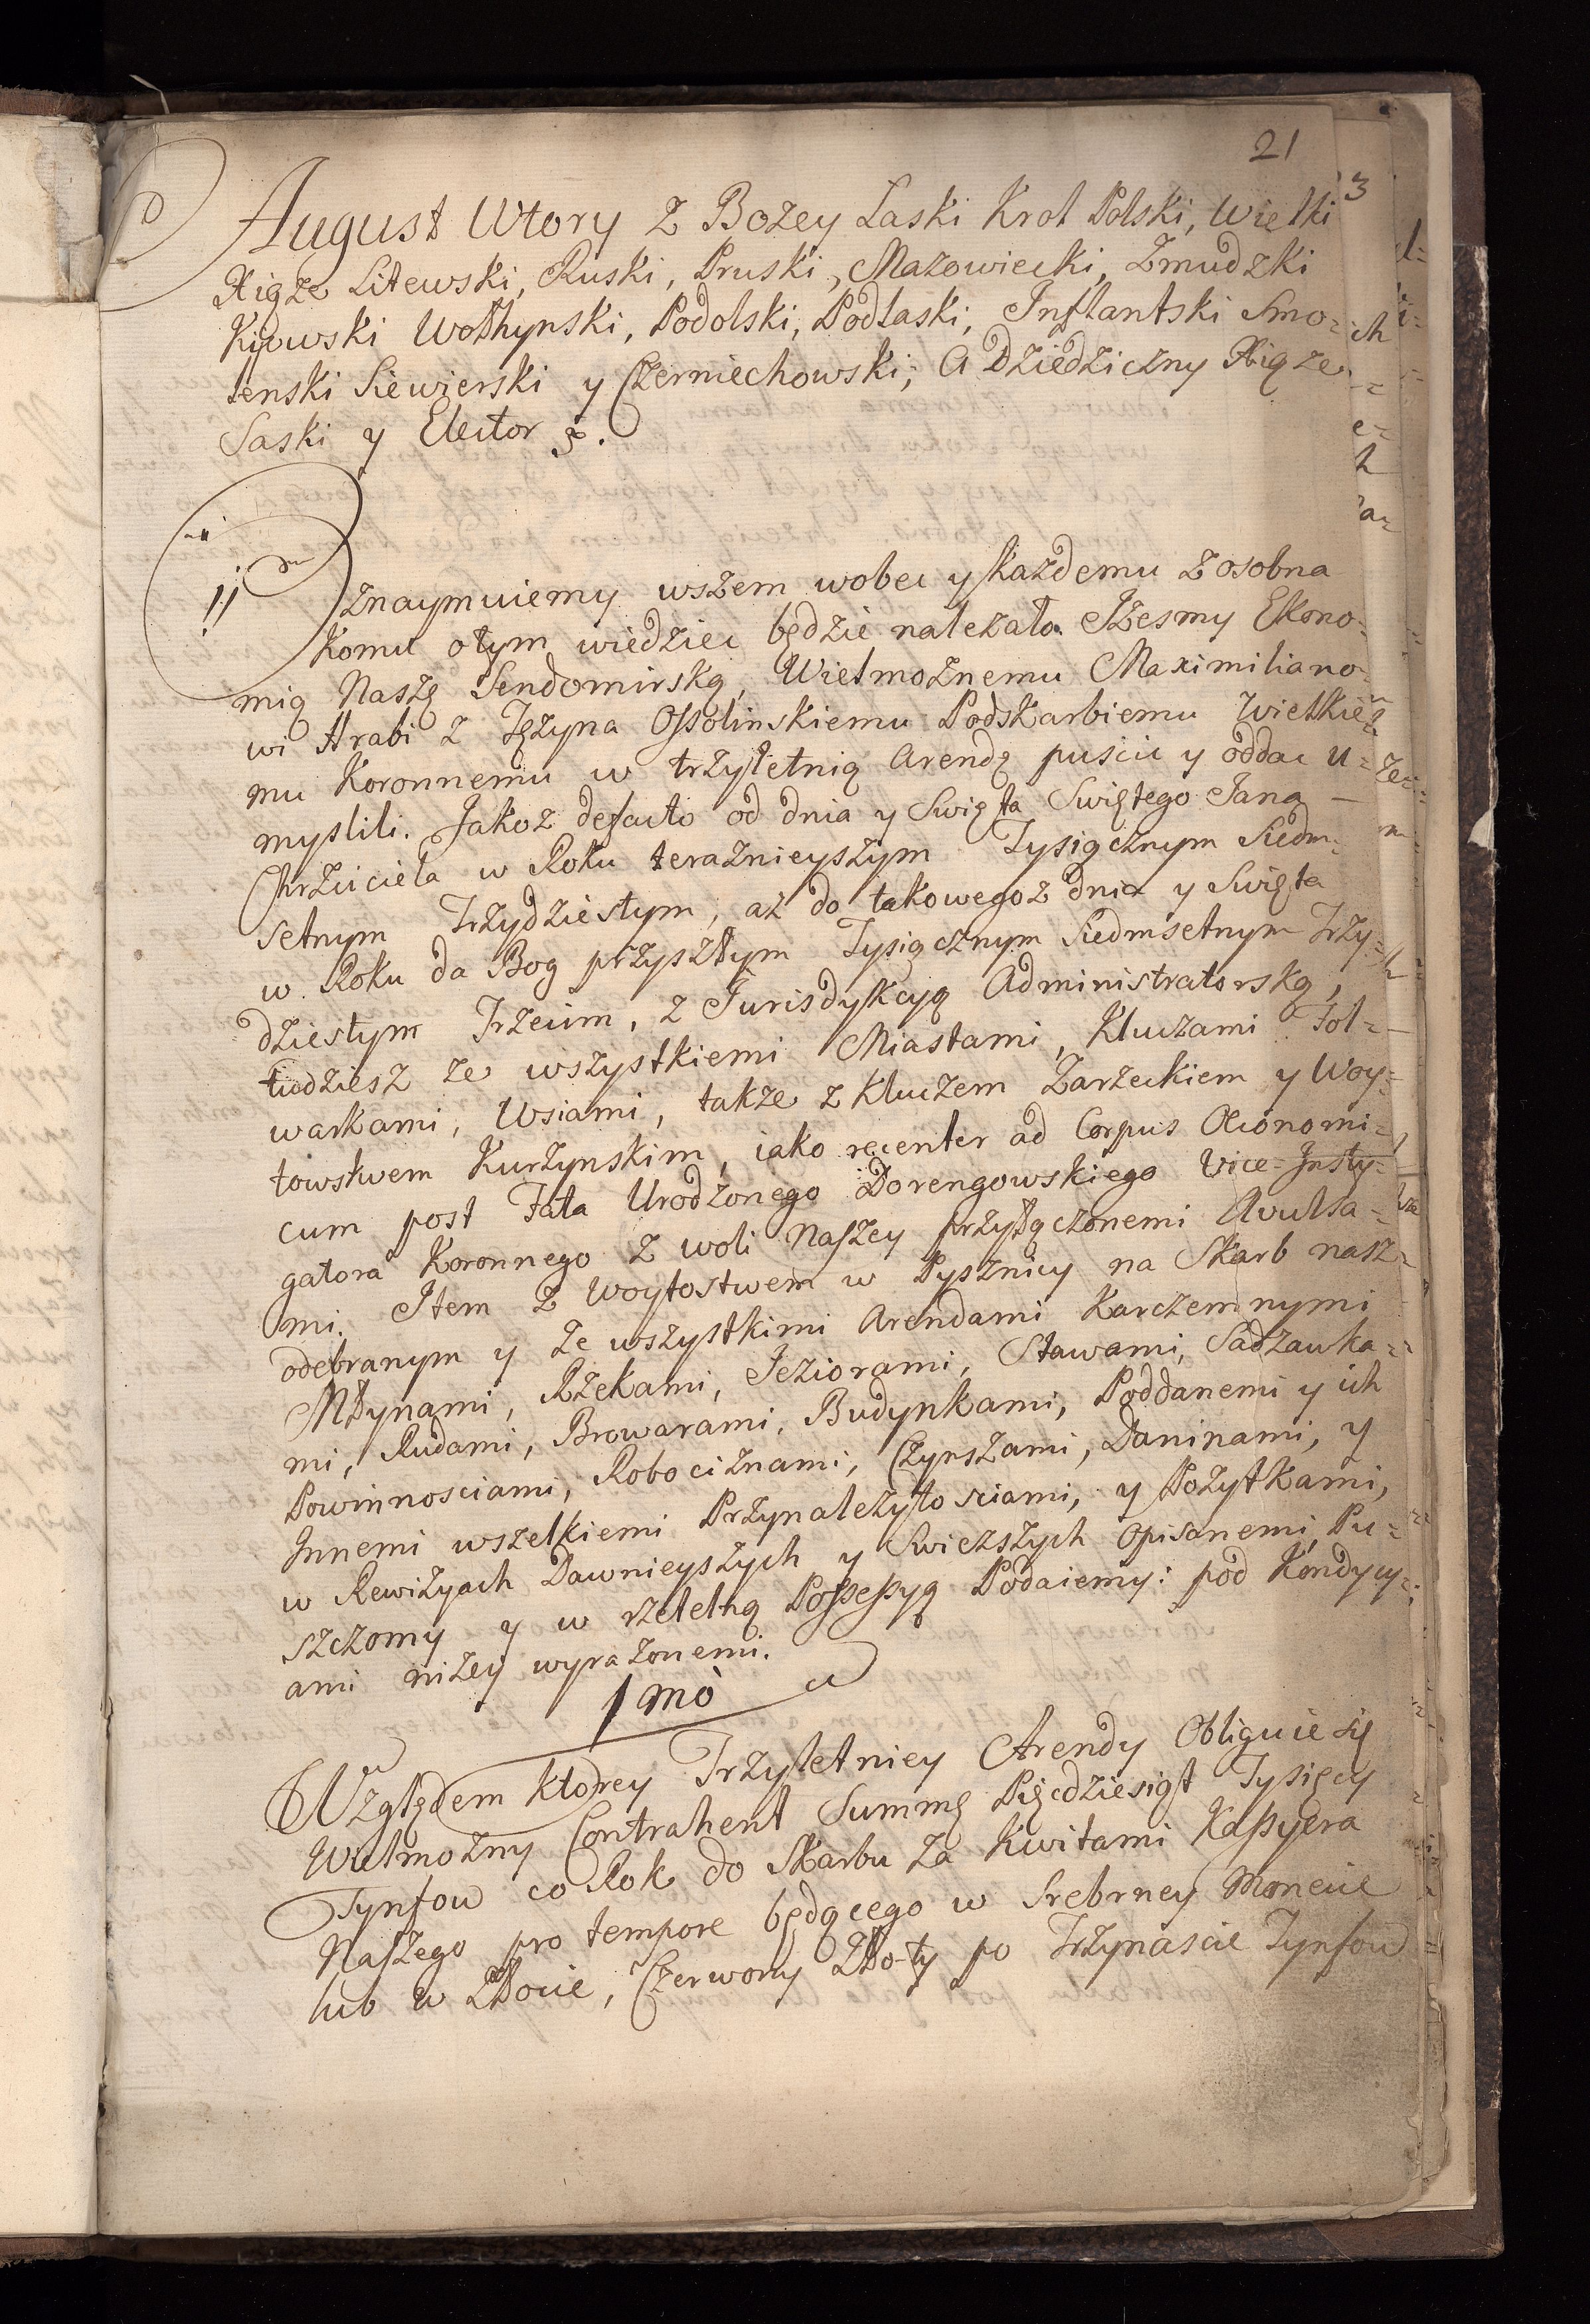 21
3
August Wtory Z Bozey Laski Krol Polski, Wielki
Xiąże Litewski, Ruski, Pruski, Mazowiecki, Zmudzki
Kijowski Wołhynski, Podolski, Podlaski, Inflantski Smo=
lenski Siewierski y Czerniechowski; A Dziedziczny Xiąze
Saski y Elector &.
Oznaymuiemy wszem wobec y Każdemu z osobna
Komu otym wiedziec będzie nalezało. Iżesmy Ekono=
mią Naszę Sendomirską, Wielmożnemu Maximiliano=
wi Hrabi z Tęzyna Ossolinskiemu Podskarbiemu Wielkie=
mu Koronnemu w trzyletnią Arendę puscic y oddac u=
myslili. Jakoz defacto od dnia y Swięta Swiętego Jana
Chrzciciela w Roku teraznieyszym Tysiącznym Siedm=
setnym Trzydziestym, az do takowegoz dnia y Swięta
w Roku da Bog przyszłym Tysiącznym Siedmsetnym Trzy=
dziestym Trzecim, z Jurisdykcyą Administratorską,
tudziesz ze wszystkiemi Miastami, Kluczami Fol=
warkami, Wsiami, także z Kluczem Zarzeckiem y Woy=
towstwem Kurzynskim, iako recenter ad Corpus Oeconomi=
cum post Fata Urodzonego Dorengowskiego Vice-Insty=
gatora Koronnego z woli Naszey przyłączonemi Avulsa=
mi. Item z Woytostwem w Pysznicy na Skarb nasz
odebranym y ze wszystkimi Arendami Karczemnymi
Młynami, Rzekami, Jeziorami, Stawami, Sadzawka=
mi, Rudami, Browarami, Budynkami, Poddanemi y ich
Powinnosciami, Robociznami, Czynszami, Daninami, y
Innemi wszelkiemi Przynależytosciami, y Pożytkami,
w Rewizyach Dawnieyszych y Swiezszych opisanemi, Pu=
szczomy y w rzetelną Possessyą Podaiemy: pod Kondycy=
ami niżey wyrażonemi.
1mò
Względem ktorey Trzyletniey Arendy Obliguie się
Wielmożny Contrahent Summę Pięcdziesiąt Tysięcy
Tynfow co Rok do Skarbu za Kwitami Kassyera
Naszego pro tempore będącego w Srebrney Monecie
lub w Złocie, Czerwony Zło-ty po Trzynascie Tynfow